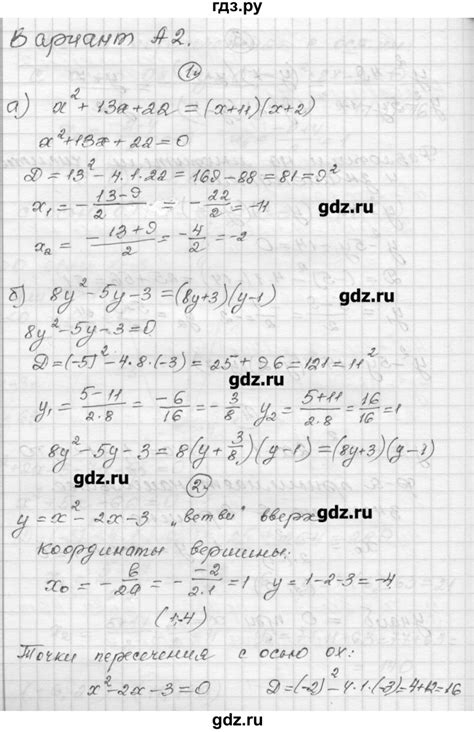 гдз.ру
Вариант А2.
1.
а) x² + 13x + 22 = (x+11)(x+2)
x²+13x+22=0
D=13²-4·1·22=169-88=81=9²
x₁=(-13-9)/2=-22/2=-11
gdz.ru
x₂=(-13+9)/2=-4/2=-2
б) 8y²-5y-3=(8y+3)(y-1)
gdz.ru
8y²-5y-3=0
D=(-5)²-4·8·(-3)=25+96=121=11²
y₁=(5-11)/(2·8)=-6/16=-3/8 y₂=(5+11)/(2·8)=16/16=1
gdz.ru
8y²-5y-3=8(y+3/8)(y-1)=(8y+3)(y-1)
gdz.ru
2.
y=x²-2x-3 „ветви" вверх
gdz.ru
Координаты вершины:
x₀=-b/2a=-(-2)/(2·1)=1 y=1-2-3=-4
(1;4)
gdz.ru
Точки пересечения с осью ox:
x²-2x-3=0 D=(-2)²-4·1·(-3)=4+12=16
gdz.ru